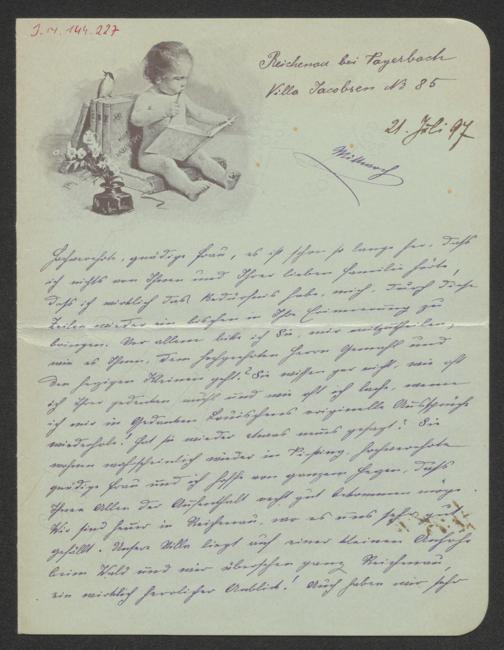 J.N. 144.227
Reichenau bei Payerbach
Villa Jacobsen No 85
21. Juli 97
Mittwoch
Hochverehrte, gnädige Frau, es ist schon so lange her, daß
ich nichts von Ihnen und Ihrer lieben Familie hörte,
daß ich wirklich das Bedürfnis habe, mich durch diese
Zeilen wieder ein bischen in Ihre Erinnerung zu
bringen. Vor allem bitte ich Sie, mir mitzutheilen,
wie es Ihnen, dem hochgeehrten Herrn Gemahl und
den herzigen Kleinen geht? Sie wissen gar nicht, wie oft
ich Ihrer gedenke und wie oft ich lache, wenn
ich mir in Gedanken originelle Aussprüche
wiederhole! Hat sie wieder etwas neues gesagt? Sie
wohnen wahrscheinlich wieder in hochverehrte
gnädige Frau und ich hoffe von ganzem Herzen, daß
Ihnen Allen der Aufenthalt recht gut bekommen möge.
Wir sind heuer in Reichenau, wo es uns sehr gut
gefällt. Unsere Villa liegt auf einer kleinen Anhöhe
beim Wald und wir übersehen ganz Reichenau,
ein wirklich herrlicher Anblick! Auch haben wir sehr